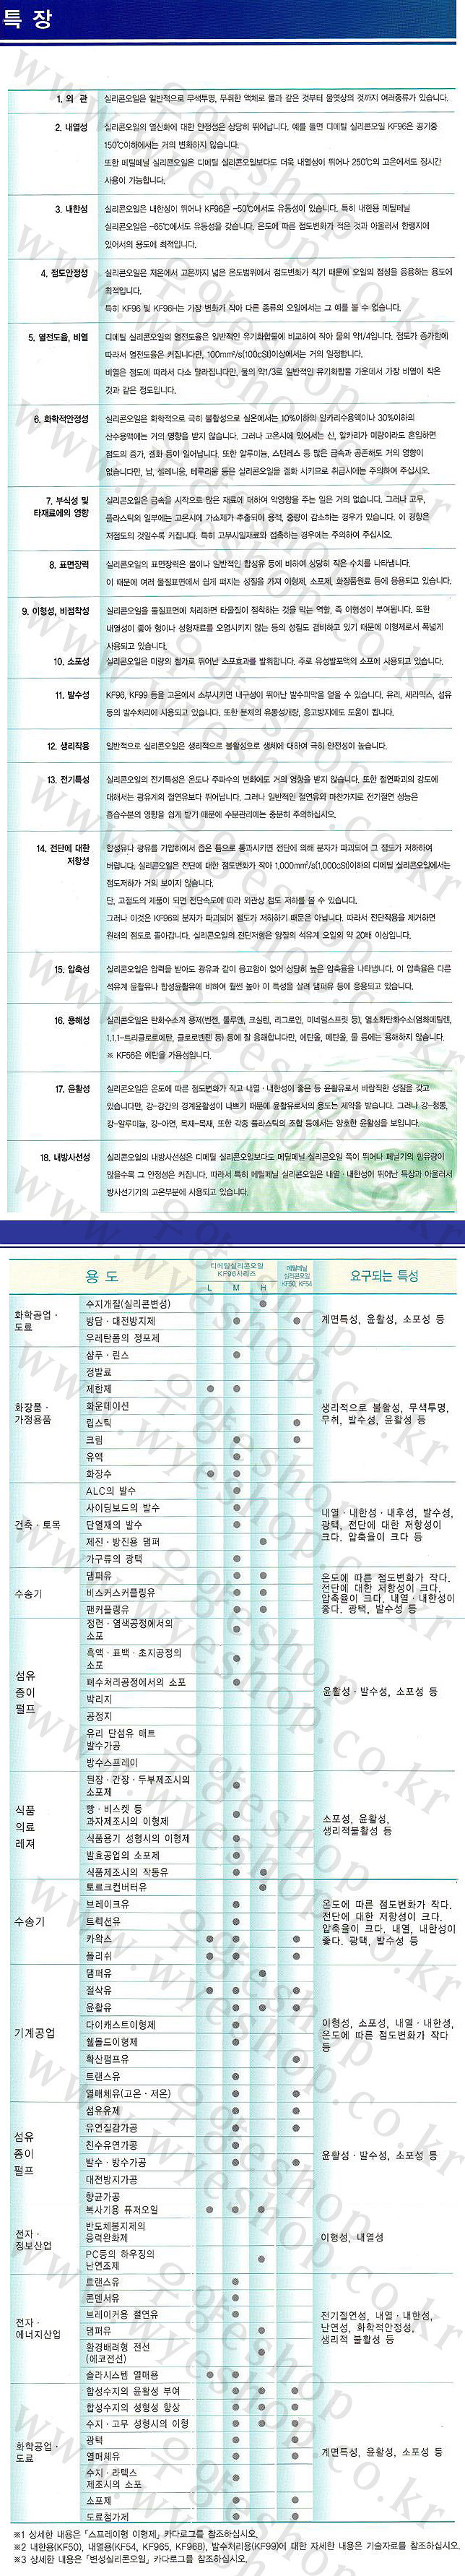 특 장
1. 외 관 실리콘오일은 일반적으로 무색투명, 무취한 액체로 물과 같은 것부터 물엿상의 것까지 여러종류가 있습니다.
2. 내열성 실리콘오일의 열산화에 대한 안정성은 상당히 뛰어납니다. 예를 들면 디메틸 실리콘오일 KF96은 공기중
150℃이하에서는 거의 변화하지 않습니다.
또한 메틸페닐 실리콘오일은 디메틸 실리콘오일보다도 더욱 내열성이 뛰어나 250℃의 고온에서도 장시간
사용이 가능합니다.
3. 내한성 실리콘오일은 내한성이 뛰어나 KF96은 -50℃에서도 유동성이 있습니다. 특히 내한용 메틸페닐
실리콘오일은 -65℃에서도 유동성을 갖습니다. 온도에 따른 점도변화가 적은 것과 아울러서 한랭지에
있어서의 용도에 최적입니다.
4. 점도안정성 실리콘오일은 저온에서 고온까지 넓은 온도범위에서 점도변화가 작기 때문에 오일의 점성을 응용하는 용도에
최적입니다.
특히 KF96 및 KF96H는 가장 변화가 작아 다른 종류의 오일에서는 그 예를 볼 수 없습니다.
5. 열전도율, 비열 디메틸 실리콘오일의 열전도율은 일반적인 유기화합물에 비교하여 작아 물의 약1/4입니다. 점도가 증가함에
따라서 열전도율은 커집니다만, 100mm²/s(100cSt)이상에서는 거의 일정합니다.
비열은 점도에 따라서 다소 달라집니다만, 물의 약1/3로 일반적인 유기화합물 가운데서 가장 비열이 작은
것과 같은 정도입니다.
6. 화학적안정성 실리콘오일은 화학적으로 극히 불활성으로 실온에서는 10%이하의 알카리수용액이나 30%이하의
산수용액에는 거의 영향을 받지 않습니다. 그러나 고온시에 있어서는 산, 알카리가 미량이라도 혼입하면
점도의 증가, 겔화 등이 일어납니다. 또한 알루미늄, 스텐레스 등 많은 금속과 공존해도 거의 영향이
없습니다만, 납, 셀레니움, 테루리움 등은 실리콘오일을 겔화 시키므로 취급시에는 주의하여 주십시오.
7. 부식성 및 실리콘오일은 금속을 시작으로 많은 재료에 대하여 악영향을 주는 일은 거의 없습니다. 그러나 고무,
타재료에의 영향 플라스틱의 일부에는 고온시에 가소제가 추출되어 용적, 중량이 감소하는 경우가 있습니다. 이 경향은
저점도의 것일수록 커집니다. 특히 고무시일재료와 접촉하는 경우에는 주의하여 주십시오.
8. 표면장력 실리콘오일의 표면장력은 물이나 일반적인 합성유 등에 비하여 상당히 작은 수치를 나타냅니다.
이 때문에 여러 물질표면에서 쉽게 퍼지는 성질을 가져 이형제, 소포제, 화장품원료 등에 응용되고 있습니다.
9. 이형성, 비점착성 실리콘오일을 물질표면에 처리하면 타물질이 점착하는 것을 막는 역할, 즉 이형성이 부여됩니다. 또한
내열성이 좋아 형이나 성형재료를 오염시키지 않는 등의 성질도 겸비하고 있기 때문에 이형제로서 폭넓게
사용되고 있습니다.
10. 소포성 실리콘오일은 미량의 첨가로 뛰어난 소포효과를 발휘합니다. 주로 유성발포액의 소포에 사용되고 있습니다.
11. 발수성 KF96, KF99 등을 고온에서 소부시키면 내구성이 뛰어난 발수피막을 얻을 수 있습니다. 유리, 세라믹스, 섬유
등의 발수처리에 사용되고 있습니다. 또한 분체의 유동성개량, 응고방지에도 도움이 됩니다.
12. 생리작용 일반적으로 실리콘오일은 생리적으로 불활성으로 생체에 대하여 극히 안전성이 높습니다.
13. 전기특성 실리콘오일의 전기특성은 온도나 주파수의 변화에도 거의 영향을 받지 않습니다. 또한 절연파괴의 강도에
대해서는 광유계의 절연유보다 뛰어납니다. 그러나 일반적인 절연유와 마찬가지로 전기절연 성능은
흡습수분의 영향을 쉽게 받기 때문에 수분관리에는 충분히 주의하십시오.
14. 전단에 대한 합성유나 광유를 가압하에서 좁은 틈으로 통과시키면 전단에 의해 분자가 파괴되어 그 점도가 저하하여
저항성 버립니다. 실리콘오일은 전단에 대한 점도변화가 작아 1,000mm²/s(1,000cSt)이하의 디메틸 실리콘오일에서는
점도저하가 거의 보이지 않습니다.
단, 고점도의 제품이 되면 전단속도에 따라 외관상 점도 저하를 볼 수 있습니다.
그러나 이것은 KF96의 분자가 파괴되어 점도가 저하하기 때문은 아닙니다. 따라서 전단작용을 제거하면
원래의 점도로 돌아갑니다. 실리콘오일의 전단저항은 양질의 석유계 오일의 약 20배 이상입니다.
15. 압축성 실리콘오일은 압력을 받아도 광유와 같이 응고함이 없어 상당히 높은 압축율을 나타냅니다. 이 압축율은 다른
석유계 윤활유나 합성윤활유에 비하여 훨씬 높아 이 특성을 살려 댐퍼유 등에 응용되고 있습니다.
16. 용해성 실리콘오일은 탄화수소계 용제(벤젠, 톨루엔, 크실렌, 리그로인, 미네랄스프릿 등), 염소화탄화수소(염화메틸렌,
1,1,1-트리클로로에탄, 클로로벤젠 등) 등에 잘 용해합니다만, 에탄올, 메탄올, 물 등에는 용해하지 않습니다.
※ KF56은 에탄올 가용성입니다.
17. 윤활성 실리콘오일은 온도에 따른 점도변화가 작고 내열·내한성이 좋은 등 윤활유로서 바람직한 성질을 갖고
있습니다만, 강-강간의 경계윤활성이 나쁘기 때문에 윤활유로서의 용도는 제약을 받습니다. 그러나 강-청동,
강-알루미늄, 강-아연, 목재-목재, 또한 각종 플라스틱의 조합 등에서는 양호한 윤활성을 보입니다.
18. 내방사선성 실리콘오일의 내방사선성은 디메틸 실리콘오일보다도 메틸페닐 실리콘오일 쪽이 뛰어나 페닐기의 함유량이
많을수록 그 안정성은 커집니다. 따라서 특히 메틸페닐 실리콘오일은 내열·내한성이 뛰어난 특장과 아울러서
방사선기기의 고온부분에 사용되고 있습니다.
용 도 디메틸실리콘오일 KF96시리즈 L M H 메틸페닐 실리콘오일 KF50, KF54 요구되는 특성
화학공업· 도료
수지개질(실리콘변성) ●
방담·대전방지제 ● ● 계면특성, 윤활성, 소포성 등
우레탄폼의 정포제
화장품· 가정용품
샴푸·린스 ●
정발료
제한제 ● ●
화운데이션 생리적으로 불활성, 무색투명,
립스틱 ● 무취, 발수성, 윤활성 등
크림 ● ●
유액 ●
화장수 ● ●
건축·토목
ALC의 발수 ●
사이딩보드의 발수 ● 내열·내한성·내후성, 발수성,
단열재의 발수 ● 광택, 전단에 대한 저항성이
제진·방진용 댐퍼 ● 크다. 압축율이 크다 등
가구류의 광택 ●
수송기
댐퍼유 ● ● 온도에 따른 점도변화가 작다.
비스커스커플링유 ● ● 전단에 대한 저항성이 크다.
압축율이 크다. 내열·내한성이
팬커플링유 ● ● 좋다. 광택, 발수성 등
섬유 종이 펄프
정련·염색공정에서의 소포 ●
흑액·표백·초지공정의 소포 ●
폐수처리공정에서의 소포 ●
박리지 윤활성·발수성, 소포성 등
공정지
유리 단섬유 매트 발수가공
방수스프레이
식품 의료 레져
된장·간장·두부제조시의 소포제 ●
빵·비스켓 등 과자제조시의 이형제 ● 소포성, 윤활성,
식품용기 성형시의 이형제 ● 생리적불활성 등
발효공업의 소포제 ●
식품제조시의 작동유 ● ●
수송기
토르크컨버터유 ●
브레이크유 ● 온도에 따른 점도변화가 작다.
트럭션유 ● 전단에 대한 저항성이 크다.
카왁스 ● ● ● 압축율이 크다. 내열, 내한성이
폴리쉬 ● ● ● 좋다. 광택, 발수성 등
기계공업
댐퍼유 ●
절삭유 ● ● ●
윤활유 ● ● ●
다이캐스트이형제 ● 이형성, 소포성, 내열·내한성,
쉘몰드이형제 ● 온도에 따른 점도변화가 작다
확산펌프유 ● 등
트랜스유 ●
열매체유(고온·저온) ● ●
섬유 종이 펄프
섬유유제 ● ●
유연질감가공 ● ●
친수유연가공 ●
발수·방수가공 ● ● 윤활성·발수성, 소포성 등
대전방지가공
향균가공
전자· 정보산업
복사기용 퓨저오일 ● ● ●
반도체봉지제의 응력완화제 이형성, 내열성
PC등의 하우징의 난연조제 ●
전자· 에너지산업
트랜스유 ●
콘덴서유 ●
브레이커용 절연유 ● 전기절연성, 내열·내한성,
댐퍼유 ● 난연성, 화학적안정성,
환경배려형 전선 (에코전선) ● 생리적 불활성 등
솔라시스템 열매용 ● ●
화학공업· 도료
합성수지의 윤활성 부여 ● ● ●
합성수지의 성형성 향상 ● ● ●
수지·고무 성형시의 이형 ● ● ●
광택 ● ●
열매체유 ● ● 계면특성, 윤활성, 소포성 등
수지·라텍스 제조시의 소포 ●
소포제 ● ●
도료첨가제 ● ●
※1 상세한 내용은 「스프레이형 이형제」 카다로그를 참조하십시오.
※2 내한용(KF50), 내열용(KF54, KF965, KF968), 발수처리용(KF99)에 대한 자세한 내용은 기술자료를 참조하십시오.
※3 상세한 내용은 「변성실리콘오일」 카다로그를 참조하십시오.